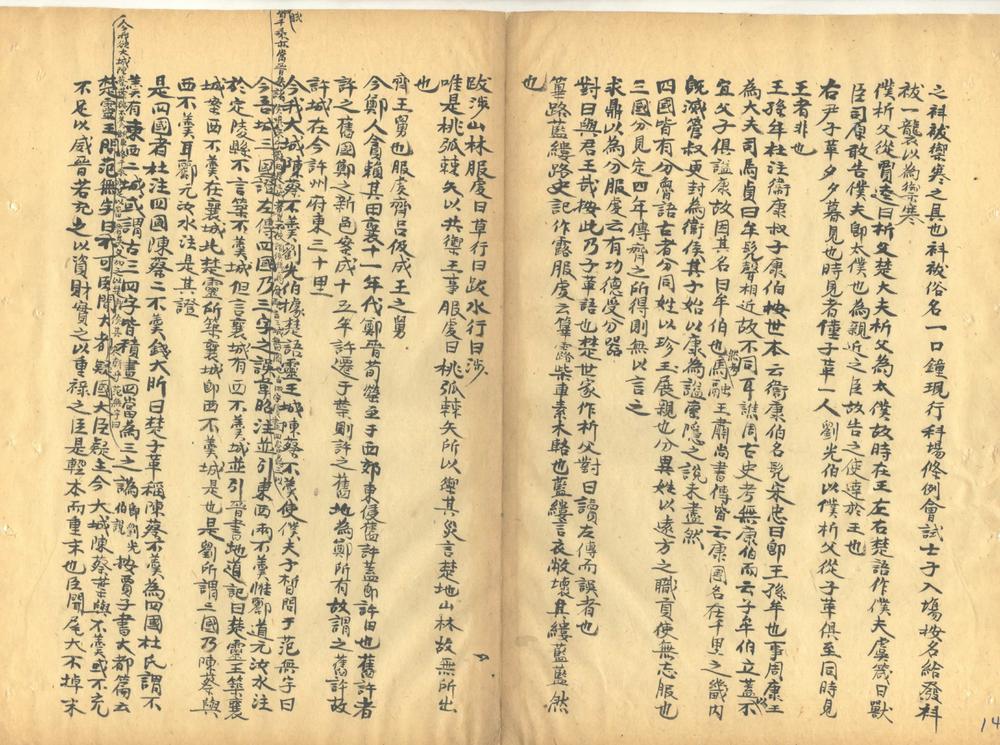 之科被禦寒之具也科被俗名一口鐘現行科場條例會試士子入塲按名給發科
被一襲以為禦寒
僕析父從賈逵曰析父楚大夫析父為太僕故時在王左右楚語作僕夫虞箴曰獸
臣司原敢告僕夫即太僕也為親近之臣故告之使達於王也
右尹子革夕夕暮見也時見者僅子革一人劉光伯以僕析父從子革俱至同時見
王者非也
王孫牟杜注衛康叔子康伯按世本云衞康伯名髡宋忠曰即王孫牟也事周康王
為大夫司馬貞曰牟髡聲相近故不同耳譙周古史考無康伯而云子牟伯立蓋不
宜父子俱謚康故因其名曰牟伯也馬融王肅尚書傳皆云康國名在千里之畿内
既滅管叔更封為衛侯其子始以康為謚索隱之說未盡然
四國皆有分魯語古者分同姓以珍玉展親也分異姓以遠方之職貢使無忘服也
三國分見定四年傳齊之所得則無以言之
求鼎以為分服虔云有功德受分器
對曰與君王哉按此乃子革語也楚世家作析父對曰讀左傳而誤者也
篳路藍縷路史記作露服虔云篳露柴車素木輅也藍縷言衣敝壞其縷藍藍然
也
跋涉山林服虔曰草行曰跋水行曰涉
唯是桃弧棘矢以共禦王事服虔曰桃弧棘矢所以禦其災言楚地山林故無所出
也
齊王舅也服虔齊呂伋成王之舅
今鄭人貪賴其田襄十一年代鄭晉荀罃至于西郊東侵舊許蓋即許田也舊許者
許之舊國鄭之新邑案成十五年許遷于葉則許之舊地為鄭所有故謂之舊許故
許城在今許州府東三十里
今我大城陳蔡不羹劉光伯據楚語靈王城陳蔡不羹使僕夫子晳問于范無宇曰
今吾城三國謂左傳四國乃三字之誤韋昭注並引東西兩不羹惟酈道元汝水注
於定陵縣不言築不羹城但言襄城有西不羹城並引晉書地道記曰楚靈王築襄
城案西不羹在襄城北楚靈所築襄城即西不羹城是也是劉所謂三國乃陳蔡與
西不羹耳酈元汝水注是其證
是四國者杜注四國陳蔡二不羹錢大昕曰楚子革稱陳蔡不羹為四國杜氏謂不
羹有東西二城或謂古三四字皆積畫四當為三之譌即劉光伯說按賈子書大都篇云
楚靈王問范無宇曰不可臣聞大都疑國大臣疑主今大城陳蔡葉與不羹或不充
不足以威晉若充之以資財實之以重祿之臣是輕本而重末也臣聞尾大不掉末
14